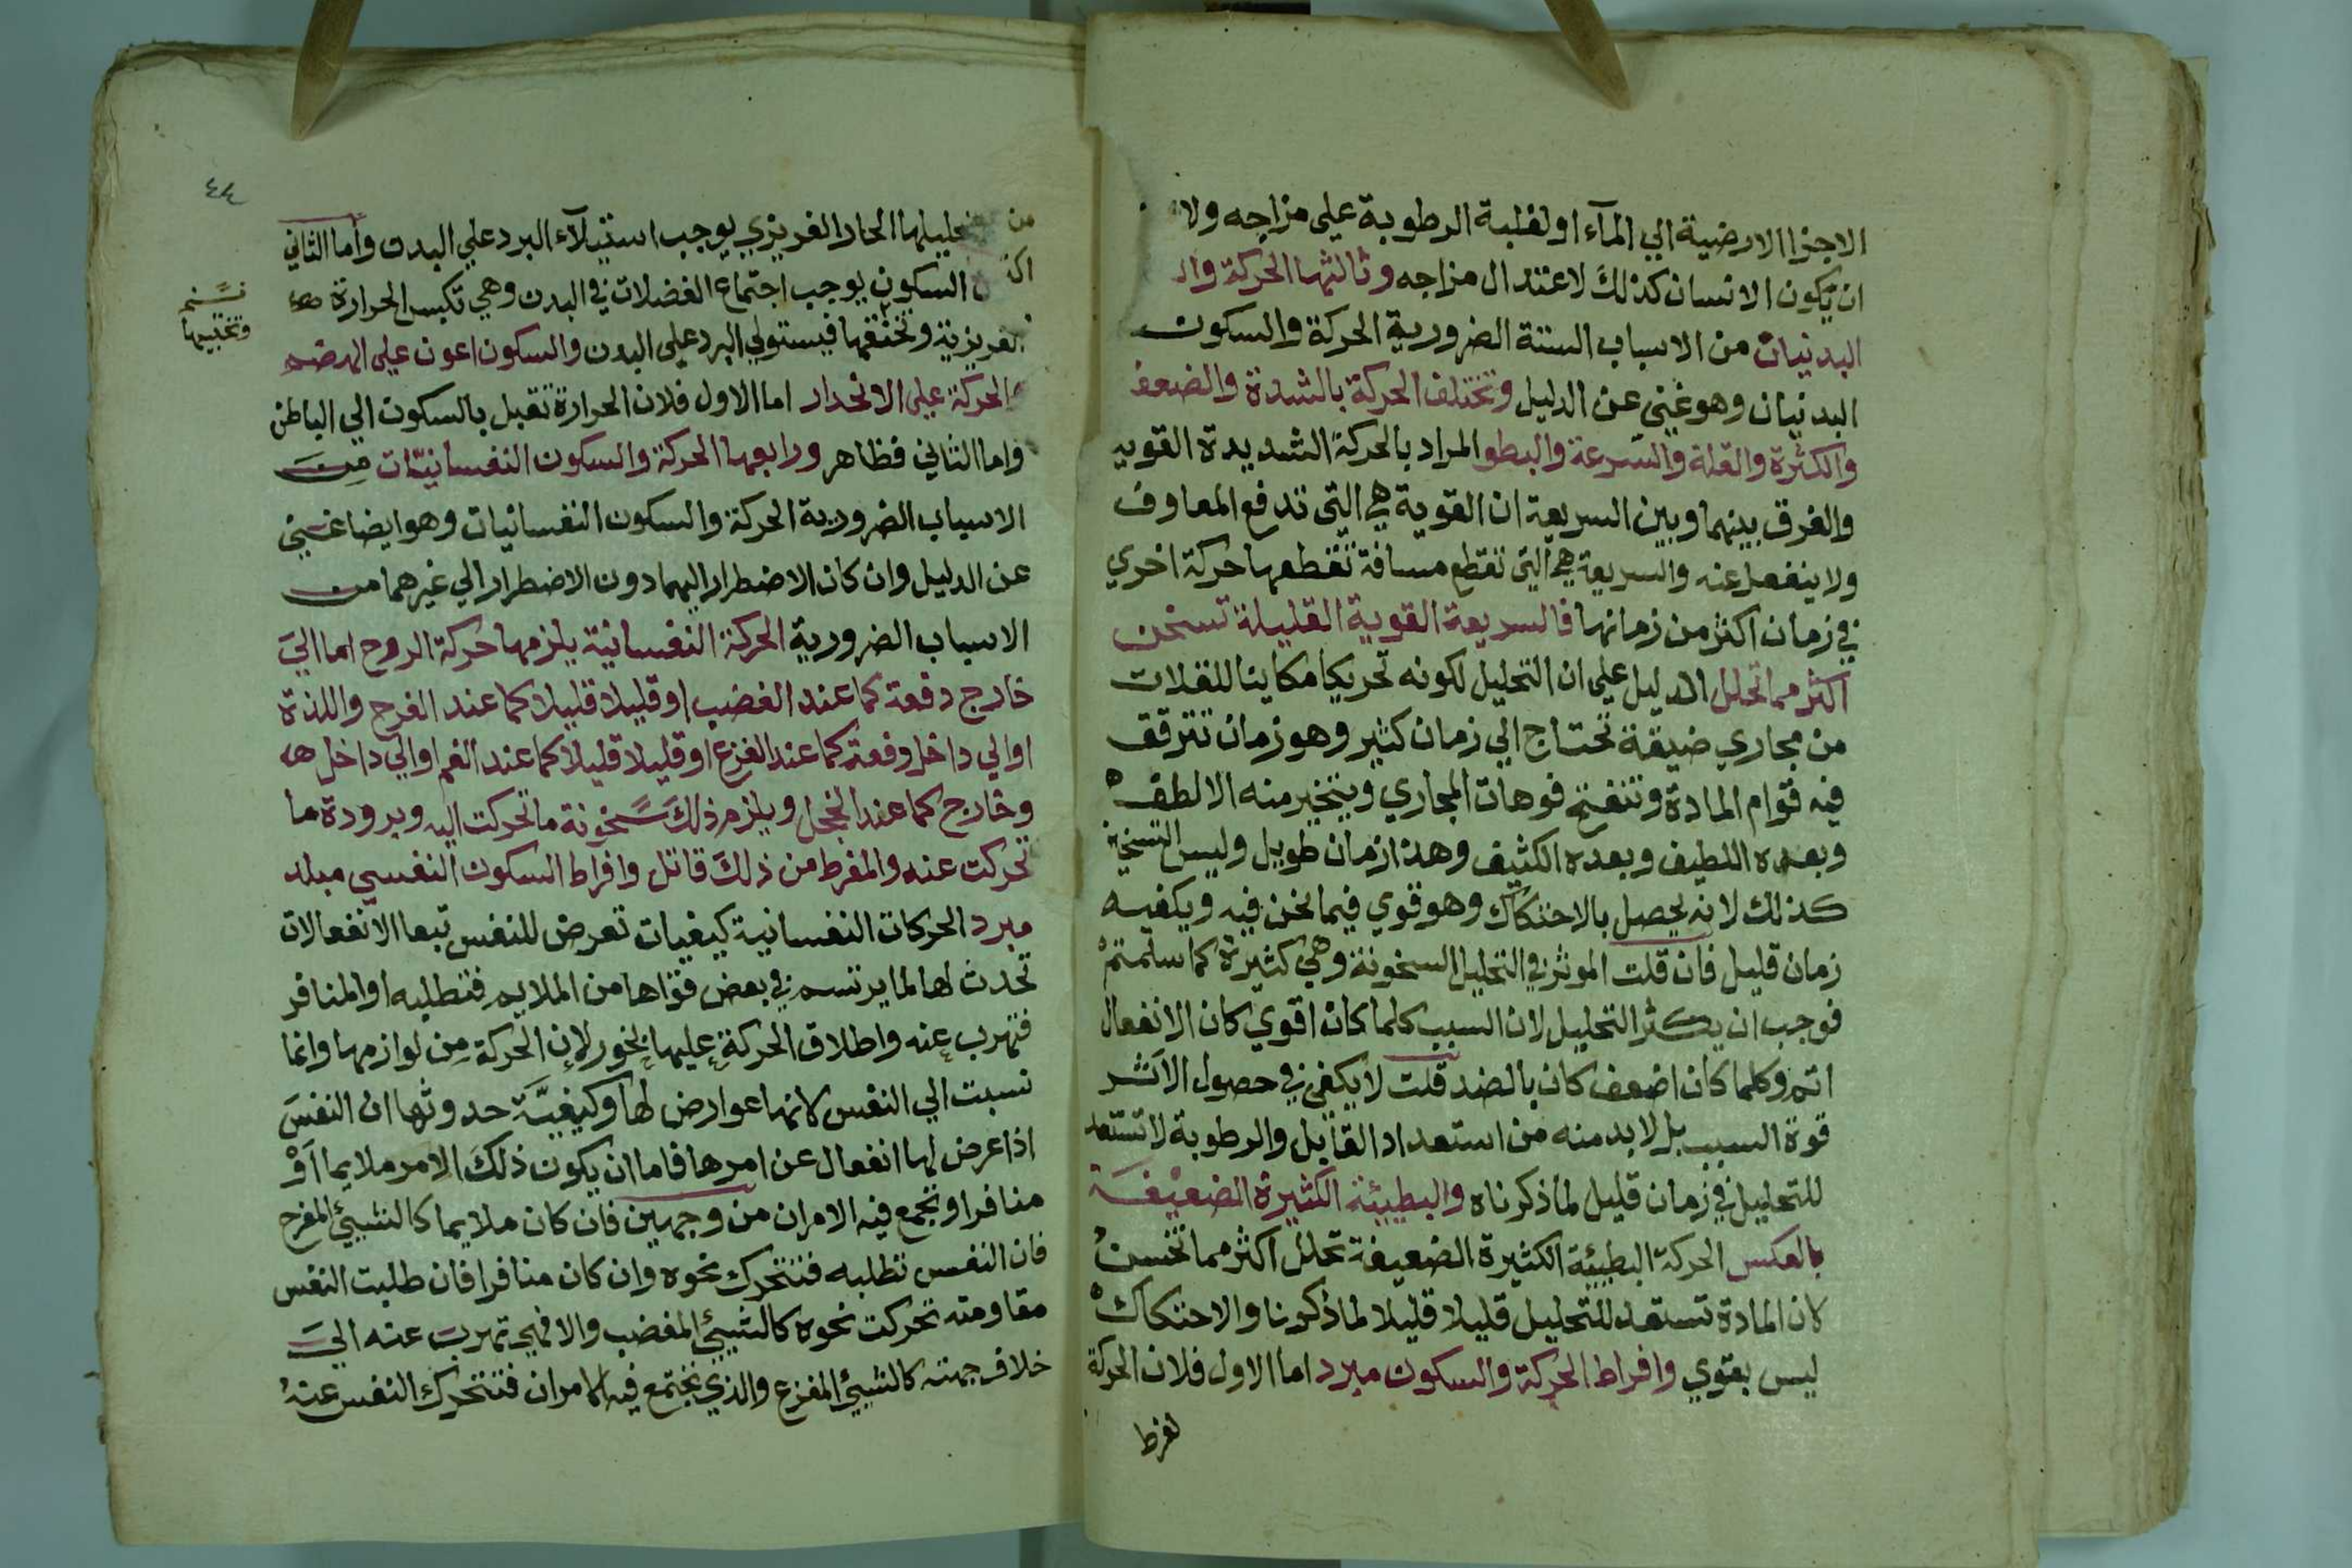 الاجزا الارضية الي المآء او لغلبة الرطوبة علي مزاجه ولا
ان يكون الانسان كذلك لاعتدال مزاجه وثالثها الحركة وال
البدنيان من الاسباب الستة الضرورية الحركة والسكون
البدنيان وهو غني عن الدليل وتختلف الحركة بالشدة والضعف
والكثرة والقلة والسرعة والبطو المراد بالحركة الشديدة القويه
والفرق بينهما وبين السريعة ان القوية هي التي تدفع المعاوف
ولا ينفعل عنه والسريعة هي التي تقطع مسافة تقطعها حركة اخري
في زمان اكثر من زمانها فالسريعة القوية القليلة تسخن
اكثر مما تحلل الدليل علي ان التحليل لكونه تحريكا مكاينا للفلات
من مجاري ضيقة تحتاج الي زمان كثير وهو زمان تترقق
فيه قوام المادة وتنفتح فوهات المجاري ويتبخير منه الالطف
وبعده اللطيف وبعده الكثيف وهذا زمان طويل وليس التسخين
كذلك لانه يحصل بالاحتكاك وهو قوي فيما نحن فيه ويكفيه
زمان قليل فان قلت الموثر في التحليل السخونة وهي كثيرة كما سلمتم
فوجب ان يكثر التحليل لان السبب كلما كان اقوي كان الانفعال
اتم وكلما كان اضعف كان بالضد قلت لا يكفي في حصول الاثر
قوة السبب بل لا بد منه من استعداد القابل والرطوبة لا تستعد
للتحليل في زمان قليل لما ذكرناه والبطيئة الكثيرة الضعيفة
بالعكس الحركة البطيئة الكثيرة الضعيفة تحلل اكثر مما تخسن
لان المادة تستعد للتحليل قليلا قليلا لما ذكرنا والاحتكاك
ليس بقوي وافراط الحركة والسكون مبرد اما الاول فلان الحركة
لفرط
٤٤
من تحليلها الحار الغريزي يوجب استيلآء البرد علي البدن واما الثاني
السكون يوجب اجتماع الفضلات في البدن وهي تكبس الحرارة
الغريزية وتخنقها فيستولي البرد علي البدن والسكون اعون علي الهضم
والحركة علي الانحدار اما الاول فلان الحرارة تقبل بالسكون الي الباطن
واما الثاني فظاهر ورابعها الحركة والسكون النفسانيّات من
الاسباب الضرورية الحركة والسكون النفسانيات وهو ايضا غني
عن الدليل وان كان الاضطرار اليهما دون الاضطرار الي غيرهما من
الاسباب الضرورية الحركة النفسانية يلزمها حركة الروح اما الي
خارج دفعة كما عند الغضب او قليلا قليلا كما عند الفرح واللذة
او الي داخل دفعة كما عند الفزع او قليلا قليلا كما عند الغم او الي داخل
وخارج كما عند الخجل ويلزم ذلك سخونة ما تحركت اليه وبرودة ما
تحركت عنه والمفرط من ذلك قاتل وافراط السكون النفسي مبلد
مبرد الحركات النفسانية كيفيات تعرض للنفس تبعا الانفعالات
تحدث لها لما يرتسم في بعض قواها من الملايم فتطلبه او المنافر
فتهرب عنه واطلاق الحركة عليها بخور لان الحركة من لوازمها وانما
نسبت الي النفس لانها عوارض لها وكيفيَّة حدوثها ان النفس
اذا عرض لها انفعال عن امرها فاما ان يكون ذلك الامر ملايما او
منافرا وتجمع فيه الامران من وجهين فان كان ملايما كالشيئ المفرح
فان النفس تطلبه فتتحرك نحوه وان كان منافرا فان طلبت النفس
مقاومته تحركت نحوه كالشيئ المغضب والا فهي تهرب عنه الي
خلاف جهته كالشيئ المفزع والذي تجتمع فيه الامران فتتحرك النفس عنه